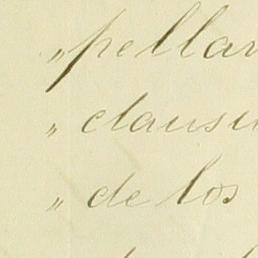 „pellan
„ clausu
„ de los